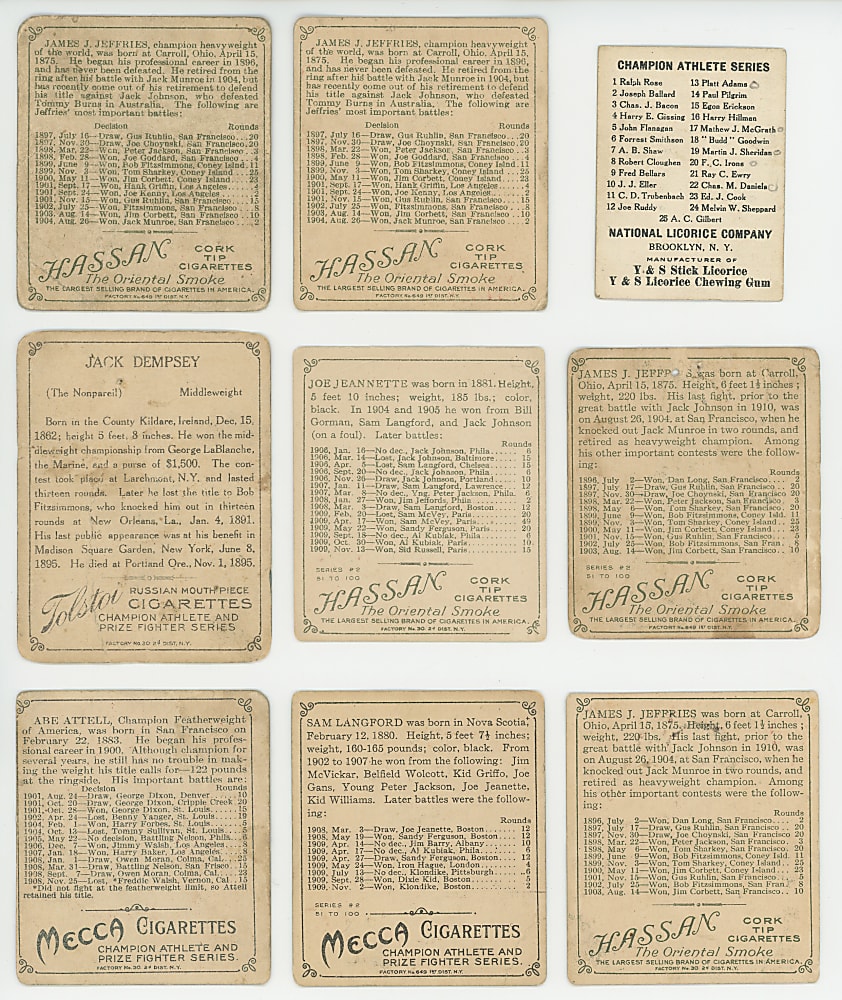 JAMES J. JEFFRIES, champion heavyweight
of the world, was born at Carroll, Ohio, April 15,
1875. He began his professional career in 1896,
and has never been defeated. He retired from the
ring after his battle with Jack Munroe in 1904, but
has recently come out of his retirement to defend
his title against Jack Johnson, who defeated
Tommy Burns in Australia. The following are
Jeffries' most important battles:
Decision Rounds
1897, July 16—Draw, Gus Ruhlin, San Francisco...20
1897, Nov. 30—Draw, Joe Choynski, San Francisco.20
1898, Mar. 22—Won, Peter Jackson, San Francisco.. 3
1898, Feb. 28—Won, Joe Goddard, San Francisco... 4
1899, June 9—Won, Bob Fitzsimmons, Coney Island.11
1899, Nov. 3—Won, Tom Sharkey, Coney Island....25
1900, May 11—Won, Jim Corbett, Coney Island....23
1901, Sept. 17—Won, Hank Griffin, Los Angeles..... 4
1901, Sept. 24—Won, Joe Kenny, Los Angeles....... 2
1901, Nov. 15—Won, Gus Ruhlin, San Francisco....15
1902, July 25—Won, Fitzsimmons, San Francisco.... 8
1903, Aug. 14—Won, Jim Corbett, San Francisco...10
1904, Aug. 26—Won, Jack Munroe, San Francisco.... 2
HASSAN CORK
TIP
CIGARETTES
The Oriental Smoke
THE LARGEST SELLING BRAND OF CIGARETTES IN AMERICA.
FACTORY No. 649 1ST DIST. N.Y.
JAMES J. JEFFRIES, champion heavyweight
of the world, was born at Carroll, Ohio, April 15,
1875. He began his professional career in 1896,
and has never been defeated. He retired from the
ring after his battle with Jack Munroe in 1904, but
has recently come out of his retirement to defend
his title against Jack Johnson, who defeated
Tommy Burns in Australia. The following are
Jeffries' most important battles:
Decision Rounds
1897, July 16—Draw, Gus Ruhlin, San Francisco...20
1897, Nov. 30—Draw, Joe Choynski, San Francisco.20
1898, Mar. 22—Won, Peter Jackson, San Francisco.. 3
1898, Feb. 28—Won, Joe Goddard, San Francisco... 4
1899, June 9—Won, Bob Fitzsimmons, Coney Island.11
1899, Nov. 3—Won, Tom Sharkey, Coney Island....25
1900, May 11—Won, Jim Corbett, Coney Island....23
1901, Sept. 17—Won, Hank Griffin, Los Angeles..... 4
1901, Sept. 24—Won, Joe Kenny, Los Angeles....... 2
1901, Nov. 15—Won, Gus Ruhlin, San Francisco....15
1902, July 25—Won, Fitzsimmons, San Francisco.... 8
1903, Aug. 14—Won, Jim Corbett, San Francisco...10
1904, Aug. 26—Won, Jack Munroe, San Francisco.... 2
HASSAN CORK
TIP
CIGARETTES
The Oriental Smoke
THE LARGEST SELLING BRAND OF CIGARETTES IN AMERICA.
FACTORY No. 649 1ST DIST. N.Y.
CHAMPION ATHLETE SERIES
1 Ralph Rose 13 Platt Adams
2 Joseph Ballard 14 Paul Pilgrim
3 Chas. J. Bacon 15 Egon Erickson
4 Harry E. Gissing 16 Harry Hillman
5 John Flanagan 17 Mathew J. McGrath
6 Forrest Smithson 18 "Budd" Goodwin
7 A. B. Shaw 19 Martin J. Sheridan
8 Robert Cloughen 20 F. C. Irons
9 Fred Bellars 21 Ray C. Ewry
10 J. J. Eller 22 Chas. M. Daniels
11 C. D. Trubenbach 23 Ed. J. Cook
12 Joe Ruddy 24 Melvin W. Sheppard
25 A. C. Gilbert
NATIONAL LICORICE COMPANY
BROOKLYN, N. Y.
MANUFACTURER OF
Y & S Stick Licorice
Y & S Licorice Chewing Gum
JACK DEMPSEY
(The Nonpareil) Middleweight
Born in the County Kildare, Ireland, Dec, 15,
1862; height 5 feet, 8 inches. He won the mid-
dleweight championship from George LaBlanche,
the Marine, and a purse of $1,500. The con-
test took place at Larchmont, N.Y. and lasted
thirteen rounds. Later he lost the title to Bob
Fitzsimmons, who knocked him out in thirteen
rounds at New Orleans, La., Jan. 4, 1891.
His last public appearance was at his benefit in
Madison Square Garden, New York, June 8,
1895. He died at Portland Ore., Nov. 1, 1895.
Tolstoi RUSSIAN MOUTHPIECE
CIGARETTES
CHAMPION ATHLETE AND
PRIZE FIGHTER SERIES
FACTORY No. 30. 2d DIST. N.Y.
JOE JEANNETTE was born in 1881. Height,
5 feet 10 inches; weight, 185 lbs.; color,
black. In 1904 and 1905 he won from Bill
Gorman, Sam Langford, and Jack Johnson
(on a foul). Later battles:
Rounds
1906, Jan. 16—No dec., Jack Johnson, Phila...... 6
1906, Mar. 14—Lost, Jack Johnson, Baltimore..... 15
1906, Apr. 5—Lost, Sam Langford, Chelsea...... 15
1906, Sept. 20—No dec., Jack Johnson, Phila...... 6
1906, Nov. 26—Draw, Jack Johnson, Portland..... 10
1907, Jan. 11—Draw, Sam Langford, Lawrence.... 12
1907, Mar. 8—No dec., Yng. Peter Jackson, Phila. 6
1908, Jan. 27—Won, Jim Jeffords, Phila.......... 2
1908, Mar. 3—Draw, Sam Langford, Boston....... 12
1909, Feb. 20—Lost, Sam McVey, Paris.......... 20
1909, Apr. 17—Won, Sam McVey, Paris........... 49
1909, May 22—Won, Sandy Ferguson, Paris....... 20
1909, Sept. 18—No dec., Al Kubiak, Phila......... 6
1909, Oct. 30—Won, Al Kubiak, Paris............ 10
1909, Nov. 13—Won, Sid Russell, Paris........... 15
SERIES #2
51 TO 100
HASSAN CORK
TIP
CIGARETTES
The Oriental Smoke
THE LARGEST SELLING BRAND OF CIGARETTES IN AMERICA.
FACTORY No. 30. 2d DIST. N.Y.
JAMES J. JEFFR S, was born at Carroll,
Ohio, April 15, 1875. Height, 6 feet 1½ inches;
weight, 220 lbs. His last fight, prior to the
great battle with Jack Johnson in 1910, was
on August 26, 1904, at San Francisco, when he
knocked out Jack Munroe in two rounds, and
retired as heavyweight champion. Among
his other important contests were the follow-
ing:
Rounds
1896, July 2—Won, Dan Long, San Francisco.... 2
1897, July 17—Draw, Gus Ruhlin, San Francisco .. 20
1897, Nov. 30—Draw, Joe Choynski, San Francisco 20
1898, Mar. 22—Won, Peter Jackson, San Francisco 3
1898, May 6—Won, Tom Sharkey, San Francisco. 20
1899, June 9—Won, Bob Fitzsimmons, Coney Isld. 11
1899, Nov. 3—Won, Tom Sharkey, Coney Island .. 25
1900, May 11—Won, Jim Corbett, Coney Island... 23
1901, Nov. 15—Won, Gus Ruhlin, San Francisco... 5
1902, July 25—Won, Bob Fitzsimmons, San Fran.. 8
1903, Aug. 14—Won, Jim Corbett, San Francisco.. 10
SERIES #2
51 TO 100
HASSAN CORK
TIP
CIGARETTES
The Oriental Smoke
THE LARGEST SELLING BRAND OF CIGARETTES IN AMERICA.
FACTORY No. 30. 2d DIST. N.Y.
ABE ATTELL, Champion Featherweight
of America, was born in San Francisco on
February 22, 1883. He began his profes-
sional career in 1900. Although champion for
several years, he still has no trouble in mak-
ing the weight his title calls for—122 pounds
at the ringside. His important battles are:
Decision Rounds
1901, Aug. 24—Draw, George Dixon, Denver......10
1901, Oct. 20—Draw, George Dixon, Cripple Creek.20
1901, Oct. 28—Won, George Dixon, St. Louis......15
1902, Apr. 24—Lost, Benny Yanger, St. Louis.....19
1904, Feb. 1—Won, Harry Forbes, St. Louis...... 5
1904, Oct. 13—Lost, Tommy Sullivan, St. Louis.... 5
1905, May 22—No decision, Battling Nelson, Phila. 6
1906, Dec. 7—Won, Jimmy Walsh, Los Angeles... 8
1907, Jan. 18—Won, Harry Baker, Los Angeles..... 8
1908, Jan. 1—Draw, Owen Moran, Colma, Cal....25
1908, Mar. 31—Draw, Battling Nelson, San Frisco..15
1908, Sept. 7—Draw, Owen Moran, Colma, Cal....23
1908, Nov. 25—Lost, *Freddie Walsh, Vernon, Cal..15
*Did not fight at the featherweight limit, so Attell
retained his title.
MECCA CIGARETTES
CHAMPION ATHLETE AND
PRIZE FIGHTER SERIES.
FACTORY No. 30. 2d DIST. N.Y.
SAM LANGFORD was born in Nova Scotia,
February 12, 1880. Height, 5 feet 7½ inches;
weight, 160-165 pounds; color, black. From
1902 to 1907 he won from the following: Jim
McVickar, Belfield Wolcott, Kid Griffo, Joe
Gans, Young Peter Jackson, Joe Jeanette,
Kid Williams. Later battles were the follow-
ing:
Rounds
1908, Mar. 3—Draw, Joe Jeanette, Boston........ 12
1908, May 19—Won, Sandy Ferguson, Boston..... 12
1909, Apr. 14—No dec., Jim Barry, Albany........ 10
1909, Apr. 17—No dec., Al Kubiak, Phila.......... 6
1909, Apr. 27—Draw, Sandy Ferguson, Boston..... 12
1909, May 24—Won, Iron Hague, London......... 4
1909, July 13—No dec., Klondike, Pittsburgh......6
1909, Sept. 28—Won, Dixie Kid, Boston........... 5
1909, Nov. 2—Won, Klondike, Boston............ 2
SERIES #2
51 TO 100
MECCA CIGARETTES
CHAMPION ATHLETE AND
PRIZE FIGHTER SERIES.
FACTORY No. 649 1ST DIST. N.Y.
JAMES J. JEFFRIES was born at Carroll,
Ohio, April 15, 1875. Height, 6 feet 1½ inches;
weight, 220 lbs. His last fight, prior to the
great battle with Jack Johnson in 1910, was
on August 26, 1904, at San Francisco, when he
knocked out Jack Munroe in two rounds, and
retired as heavyweight champion. Among
his other important contests were the follow-
ing:
Rounds
1896, July 2—Won, Dan Long, San Francisco.... 2
1897, July 17—Draw, Gus Ruhlin, San Francisco .. 20
1897, Nov. 30—Draw, Joe Choynski, San Francisco 20
1898, Mar. 22—Won, Peter Jackson, San Francisco 3
1898, May 6—Won, Tom Sharkey, San Francisco. 20
1899, June 9—Won, Bob Fitzsimmons, Coney Isld. 11
1899, Nov. 3—Won, Tom Sharkey, Coney Island.. 25
1900, May 11—Won, Jim Corbett, Coney Island... 23
1901, Nov. 15—Won, Gus Ruhlin, San Francisco... 5
1902, July 25—Won, Bob Fitzsimmons, San Fran.. 8
1903, Aug. 14—Won, Jim Corbett, San Francisco.. 10
HASSAN CORK
TIP
CIGARETTES
The Oriental Smoke
THE LARGEST SELLING BRAND OF CIGARETTES IN AMERICA.
FACTORY No. 649 1ST DIST. N.Y.